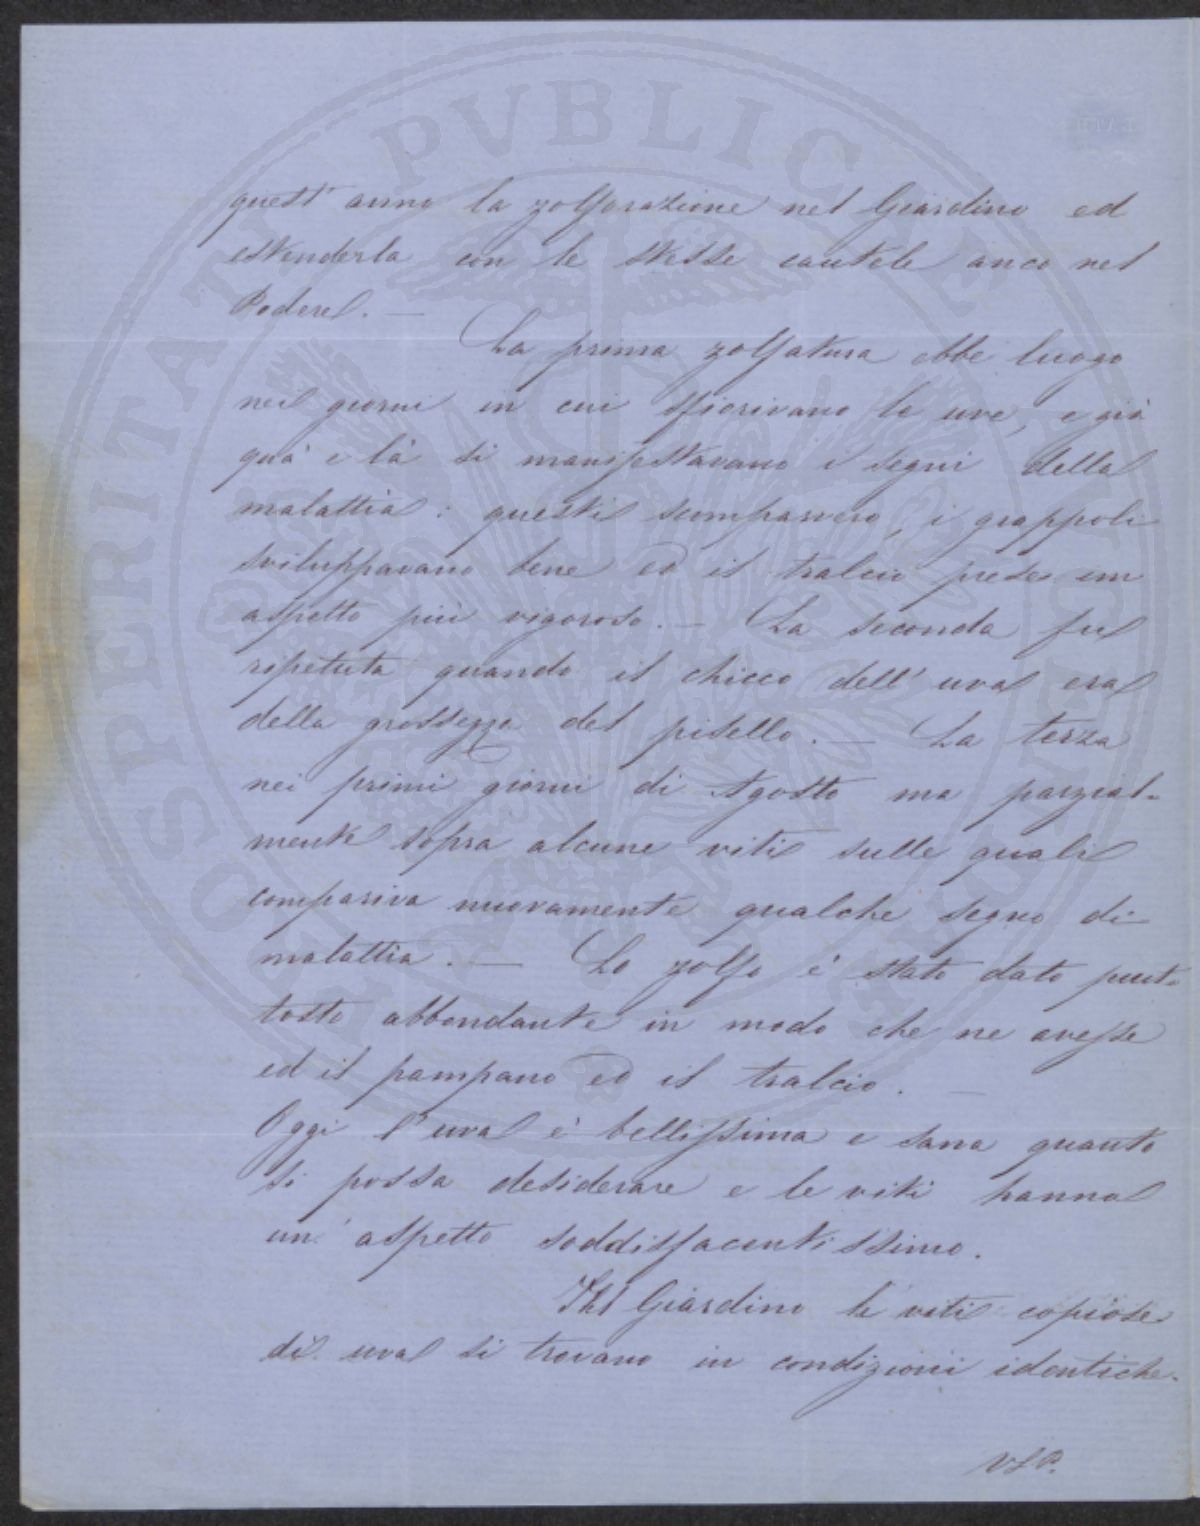 quest' anno la zolforazione nel Giardino ed
estenderla con le stesse cautele anco nel
Podere. —
La prima zolfatura ebbe luogo
nei giorni in cui sfiorivano le uve, e già
quà e là si manifestavano i segni della
malattia : questi scomparvero, i grappoli
sviluppavano bene ed il tralcio prese un
aspetto più vigoroso. — La seconda fu
ripetuta quando il chicco dell' uva era
della grossezza del pisello. — La terza
nei primi giorni di Agosto ma parzial-
mente sopra alcune viti sulle quali
compariva nuovamente qualche segno di
malattia. — Lo zolfo è stato dato piut
tosto abbondante in modo che ne avesse
ed il pampano ed il tralcio. —
Oggi l' uva è bellissima e sana quanto
si possa desiderare e le viti hanno
un' aspetto soddisfacentissimo.
Nel Giardino le viti copiose
di uva si trovano in condizioni identiche.
PROSPERITATI PVBLICAE AVGENDAE